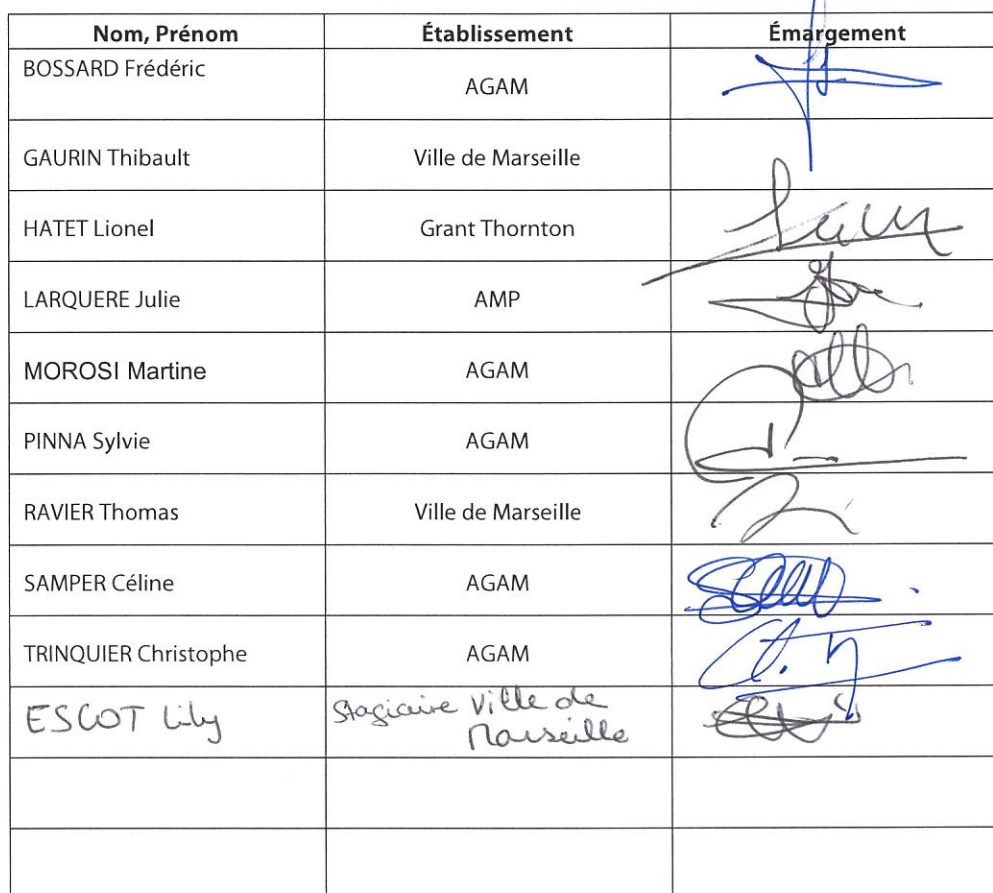 Nom, Prénom Établissement Émargement
BOSSARD Frédéric AGAM
GAURIN Thibault Ville de Marseille
HATET Lionel Grant Thornton
LARQUERE Julie AMP
MOROSI Martine AGAM
PINNA Sylvie AGAM
RAVIER Thomas Ville de Marseille
SAMPER Céline AGAM
TRINQUIER Christophe AGAM
ESCOT Lily Stagiaire Ville de
Marseille